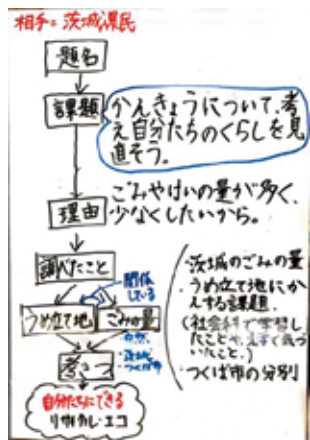 相手：茨城県民
題名
課題
かんきょうについて、考
え自分たちのくらしを見
直そう。
理由
ごみやけいの量が多く、
少なくしたいから。
調べたこと
関係
している
うめ立て地
ごみの量
つくば市
考
自分たちにできる
エコ
・茨城のごみの量
・うめ立て地にか
んする課題
(社会科で学習し
たことや、
いたこと。)
・つくば市の分別